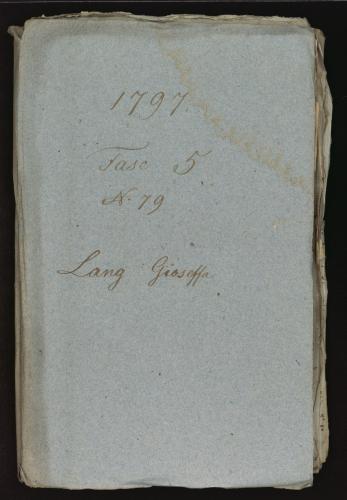 1797
Fasc 5
N. 79
Lang Gioseffa